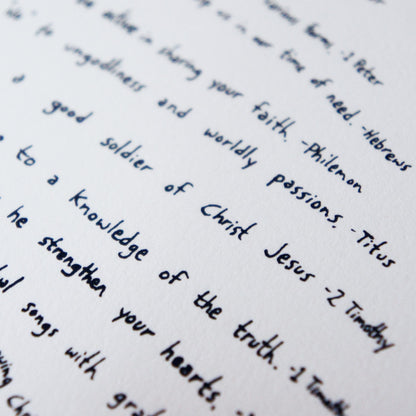 various forms. -1 Peter
us in our time of need. -Hebrews
be active in sharing your faith. -Philemon
to ungodliness and worldly passions. -Titus
a good soldier of Christ Jesus -2 Timothy
to a knowledge of the truth. -1 Timoth
he strengthen your hearts. -
songs with grat